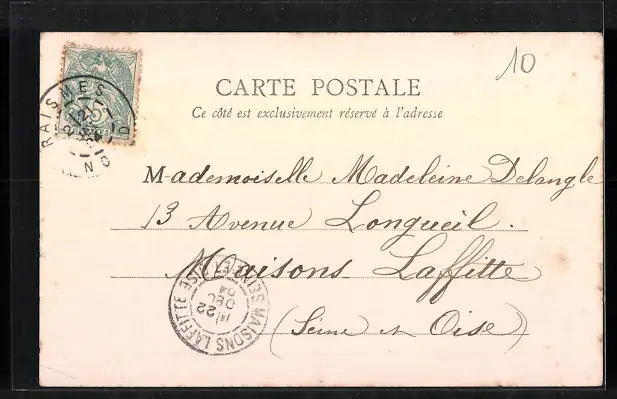 10
CARTE POSTALE
Ce côté est exclusivement réservé à l'adresse
RAISMES
NORD
5
Mademoiselle Madeleine Delangle
13 Avenue Longueil.
Maisons Laffitte
(Seine et Oise)
MAISONS LAFFITTE
22
DEC
04